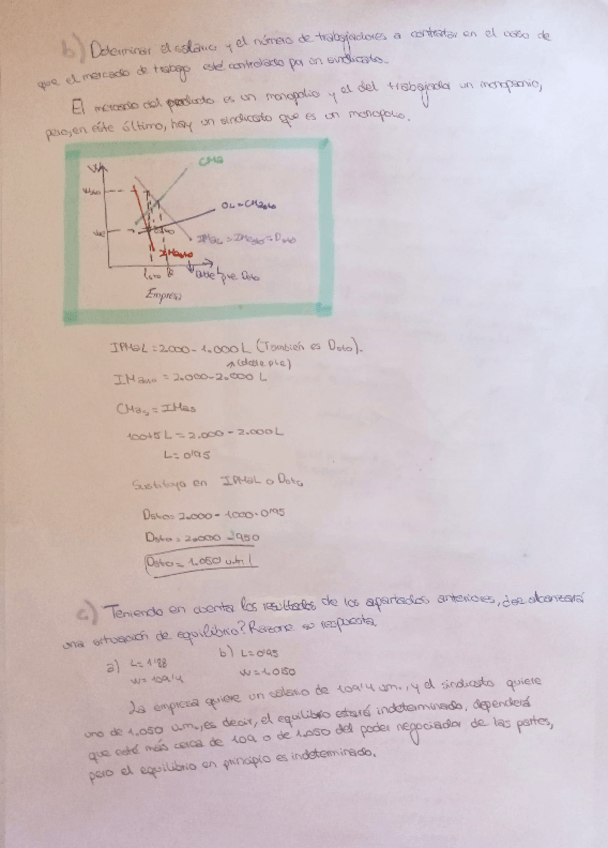 b) Determinar el salario y el número de trabajadores a contratar en el caso de
que el mercado de trabajo esté controlado por un sindicato.
El mercado del producto es un monopolio y el del trabajador un monopsonio,
pero, en éste último, hay un sindicato que es un monopolio.
W
CMa
OL = CMe
IMaL = IMe = Dsto
IMasto
Doble que Dsto
Empresa
IPMaL = 2000 - 1.000 L (También es Dsto).
(doble pte)
IMasto = 2.000 - 2.000 L
CMas = IMas
100+5 L = 2.000 - 2.000 L
L = 0'95
Sustituyo en IPMaL o Dsto
Dsto = 2.000 - 1000 · 0'95
Dsto = 2.000 - 950
Dsto = 1.050 u.m
c) Teniendo en cuenta los resultados de los apartados anteriores, ¿se alcanzará
una situación de equilibrio? Razone su respuesta.
a) L = 1'88 b) L = 0'95
W = 109'4 W = 1.050
La empresa quiere un salario de 109'4 u.m., y el sindicato quiere
uno de 1.050 u.m., es decir, el equilibrio estará indeterminado, dependerá
que esté más cerca de 109 o de 1.050 del poder negociador de las partes,
pero el equilibrio en principio es indeterminado.